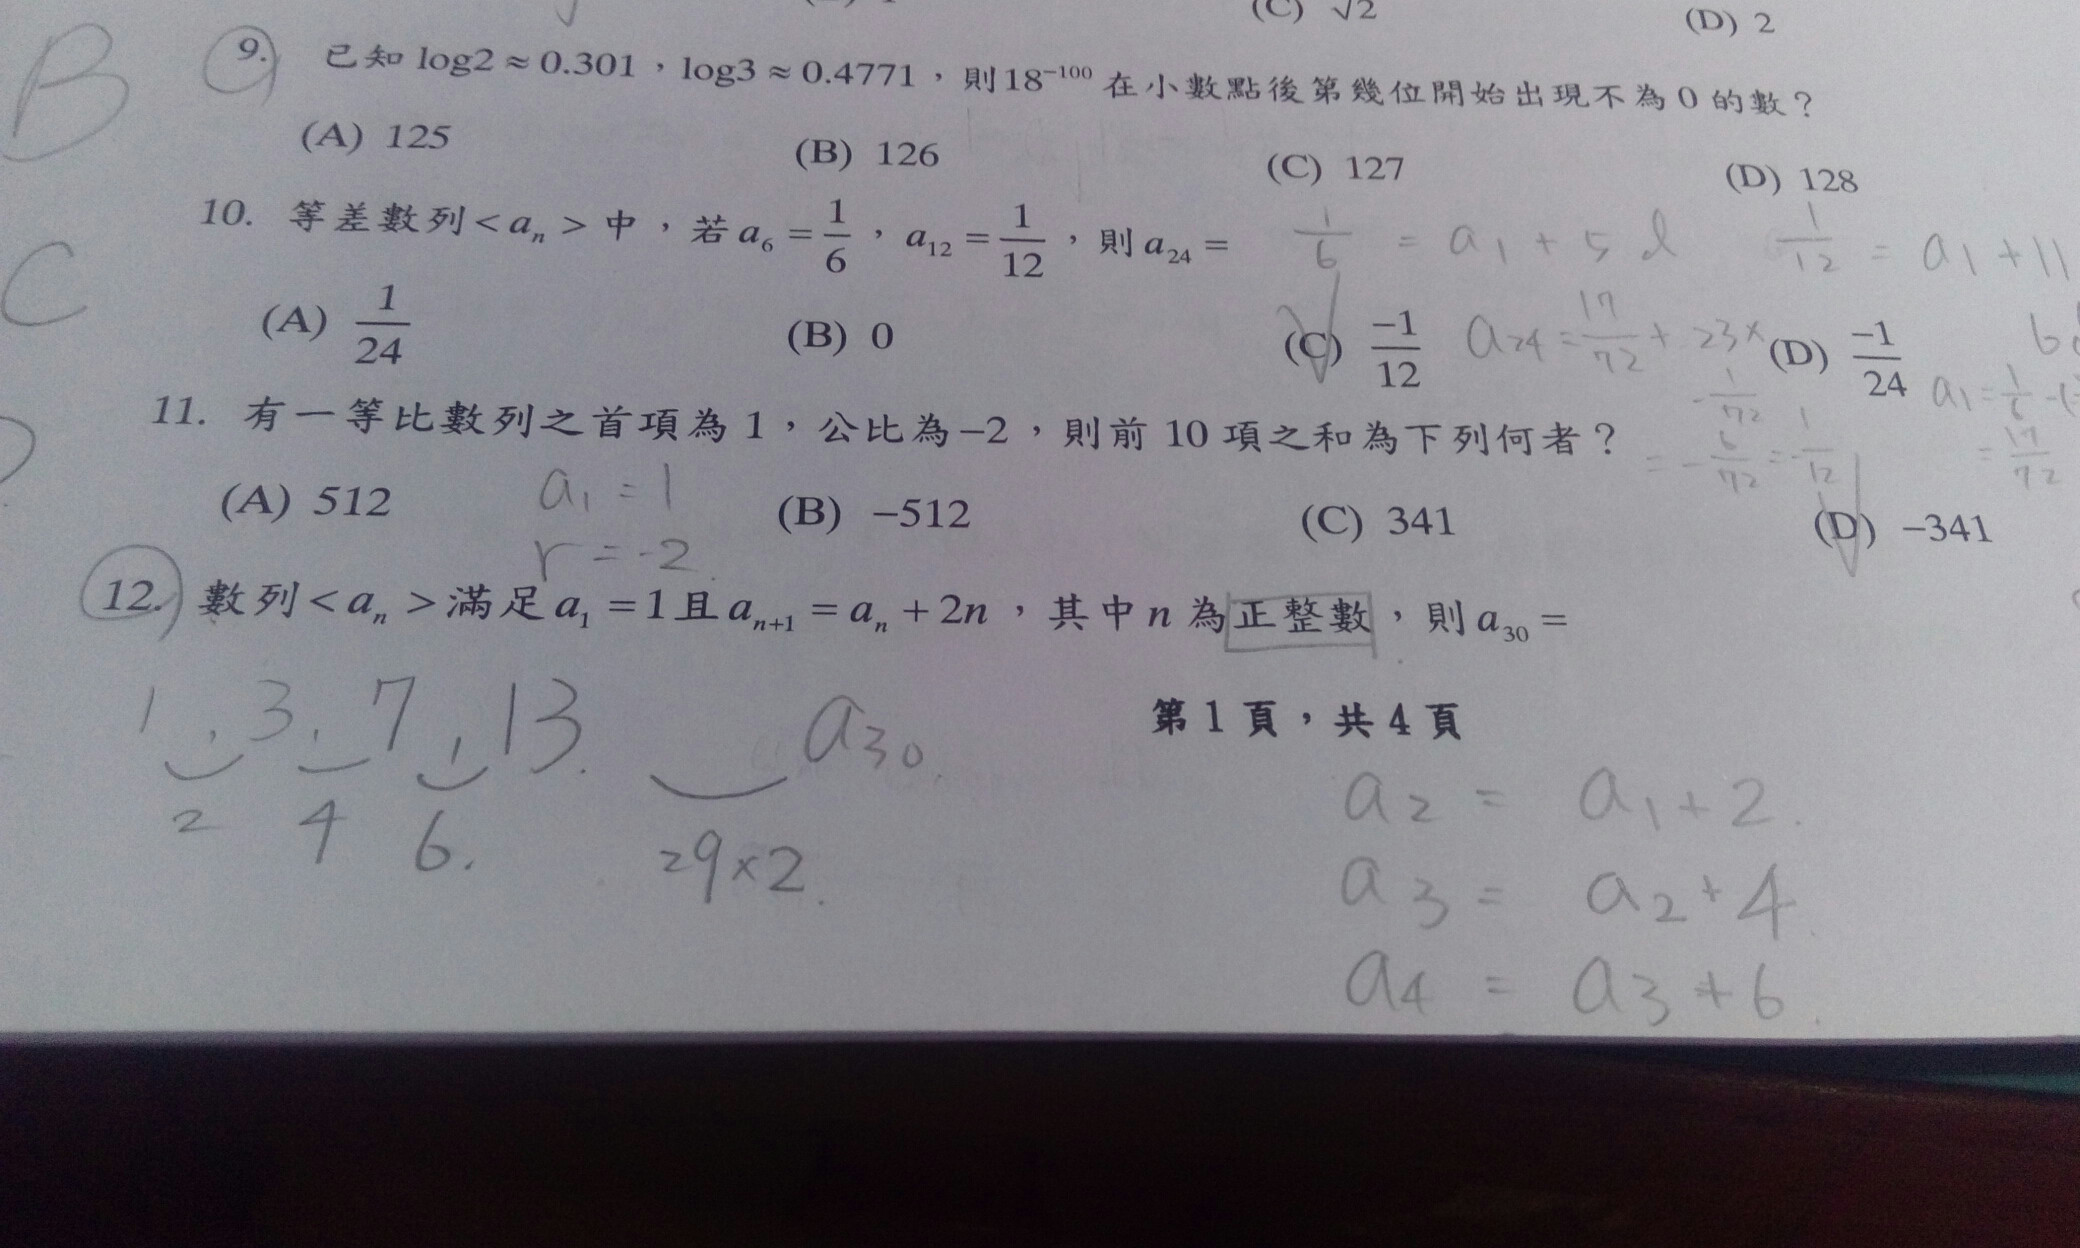 (C) √2
(D) 2
B
9. 已知 log2≈0.301，log3≈0.4771，則18⁻¹⁰⁰ 在小數點後第幾位開始出現不為 0 的數？
(A) 125 (B) 126 (C) 127 (D) 128
10. 等差數列<aₙ>中，若 a₆ = 1/6，a₁₂ = 1/12，則 a₂₄ =
1/6 = a₁ + 5d
1/12 = a₁ + 11
C
(A) 1/24 (B) 0 (C) -1/12 (D) -1/24
a₂₄ = 17/72 + 23×
-1/72
= -6/72 = -1/12
6d
a₁ = 1/6 - (-
= 17/72
11. 有一等比數列之首項為 1，公比為 −2，則前 10 項之和為下列何者？
(A) 512 (B) −512 (C) 341 (D) −341
a₁ = 1
r = -2
12. 數列<aₙ>滿足 a₁ = 1且 aₙ₊₁ = aₙ + 2n，其中 n 為正整數，則 a₃₀ =
1, 3, 7, 13. a₃₀.
2 4 6. 29×2.
第 1 頁，共 4 頁
a₂ = a₁ + 2.
a₃ = a₂ + 4
a₄ = a₃ + 6.